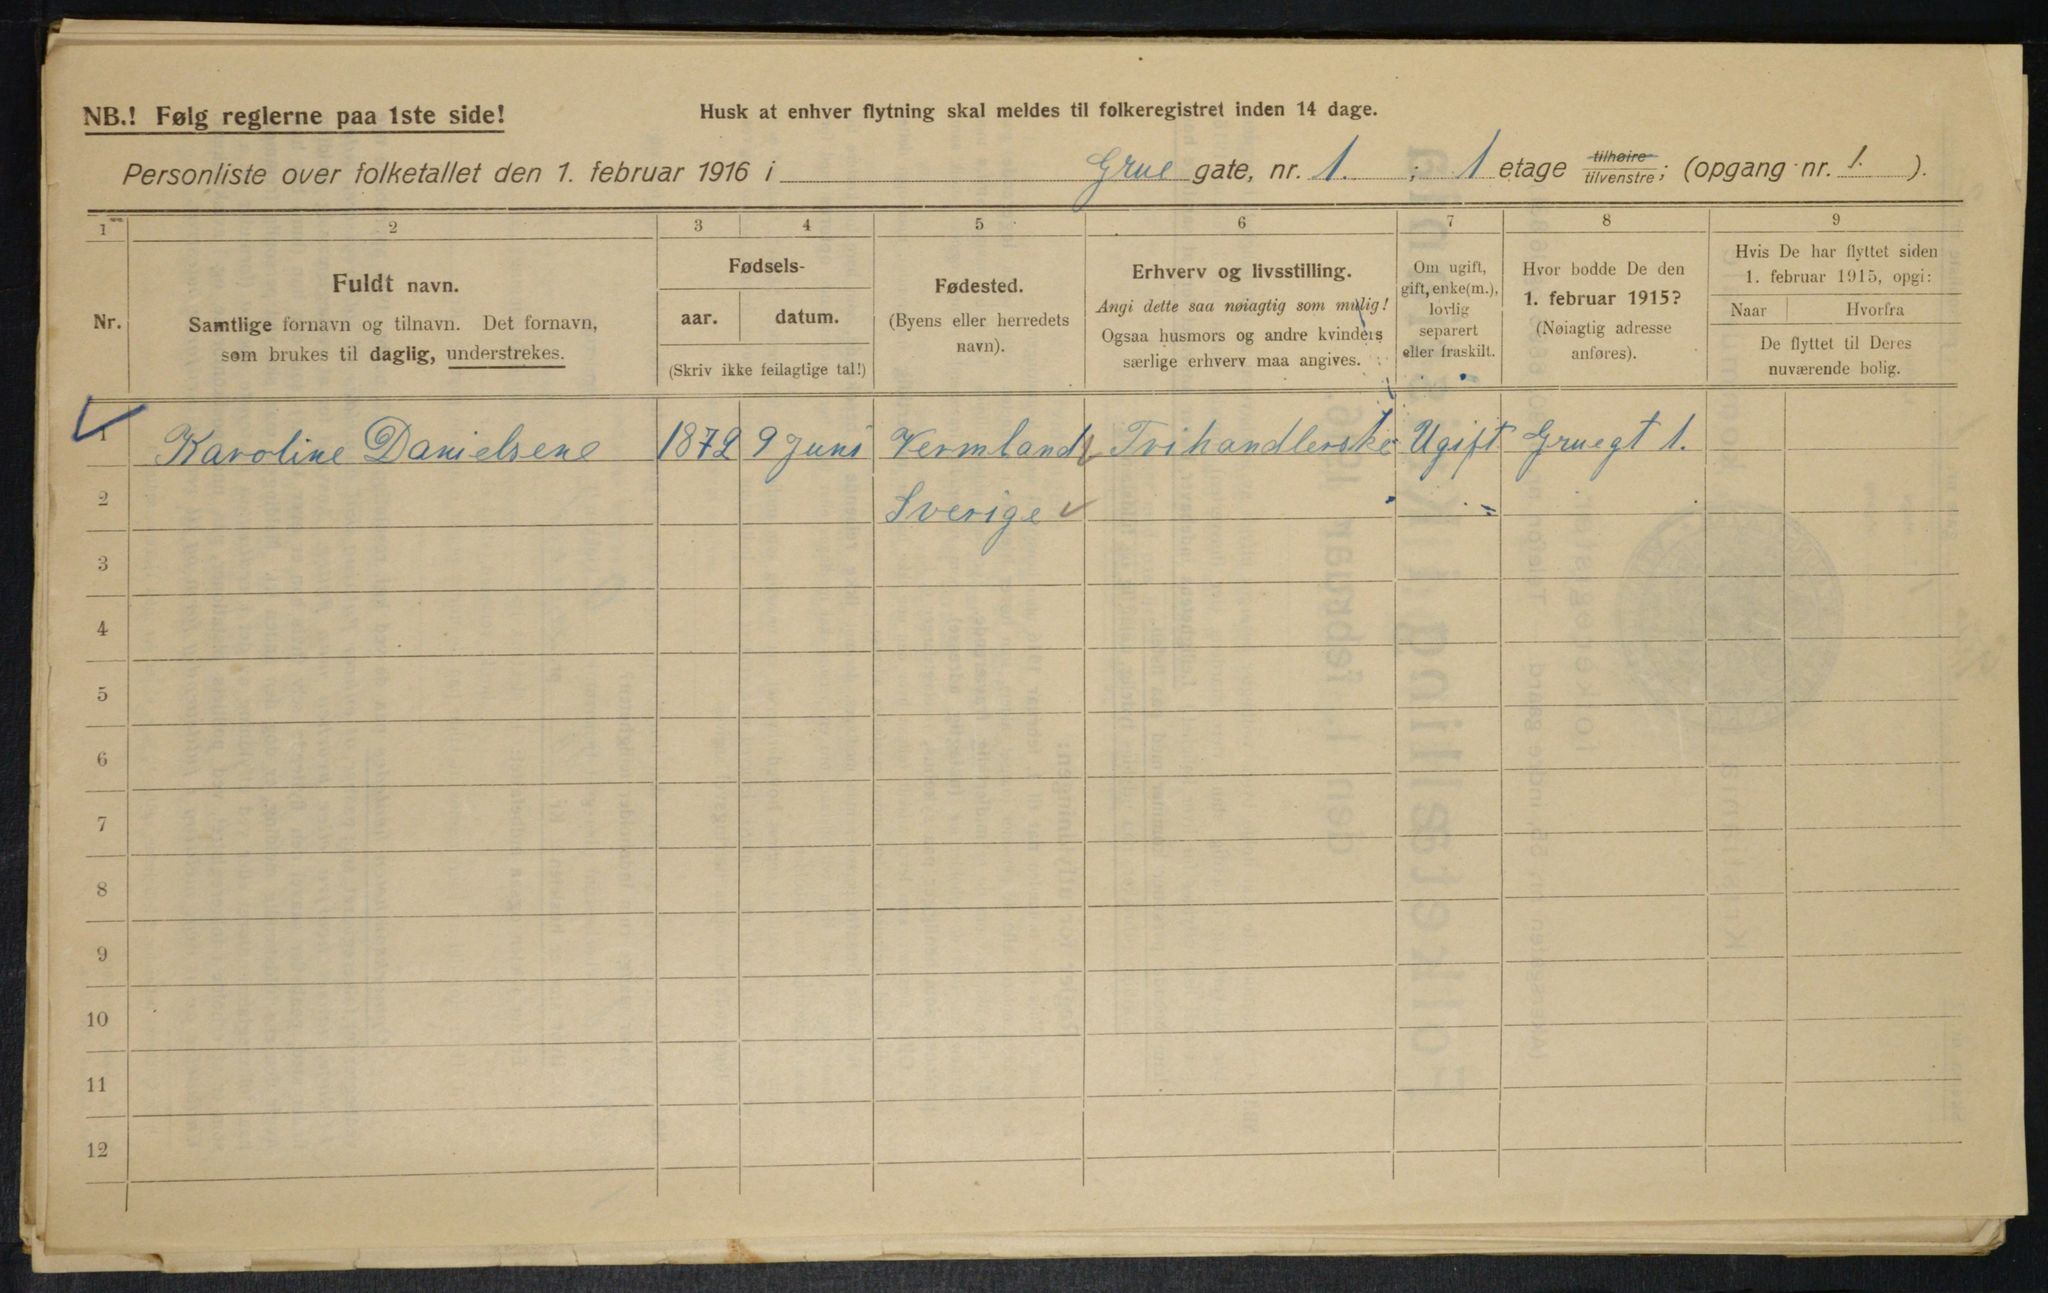 NB.! Følg reglerne paa 1ste side!
Husk at enhver flytning skal meldes til folkeregistret inden 14 dage.
Personliste over folketallet den 1. februar 1916 i Grue gate, nr. 1. ; 1 etage tilhøire tilvenstre; (opgang nr. 1. ).
1 2 3 4 5 6 7 8 9
Nr.
Fuldt navn.
Samtlige fornavn og tilnavn. Det fornavn,
som brukes til daglig, understrekes.
Fødsels-
aar. datum.
(Skriv ikke feilagtige tal!)
Fødested.
(Byens eller herredets
navn).
Erhverv og livsstilling.
Angi dette saa nøiagtig som mulig!
Ogsaa husmors og andre kvinders
særlige erhverv maa angives.
Om ugift,
gift, enke(m.),
lovlig
separert
eller fraskilt.
Hvor bodde De den
1. februar 1915?
(Nøiagtig adresse
anføres).
Hvis De har flyttet siden
1. februar 1915, opgi:
Naar Hvorfra
De flyttet til Deres
nuværende bolig.
1 Karoline Danielsene 1872 9 Juni Vermland Trihandlerske Ugift Gruegt 1.
2 Sverige
3
4
5
6
7
8
9
10
11
12